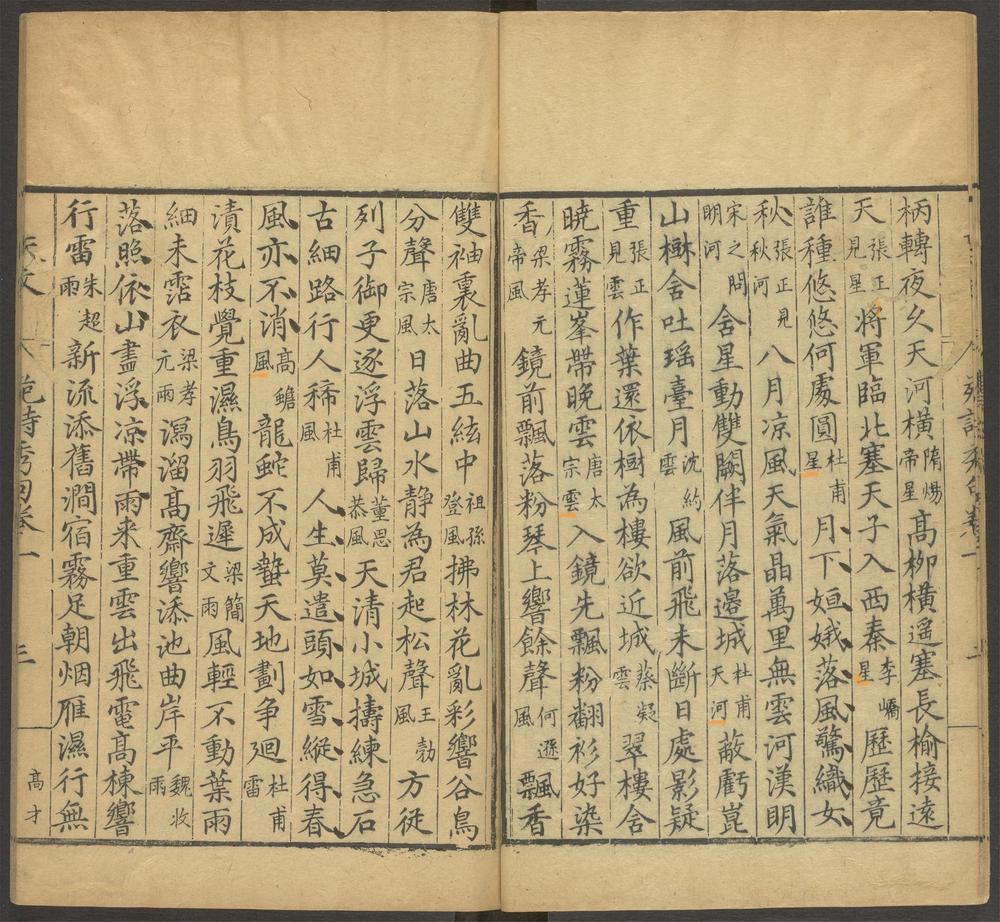 柄轉夜久天河橫隋煬帝星高柳橫遥塞長榆接遠
天張正見星將軍臨北塞天子入西秦李嶠星歷歷竟
誰種悠悠何處圓杜甫星月下姮娥落風驚織女
秋張正見秋河八月凉風天氣晶萬里無雲河漢明
宋之問明河含星動雙闕伴月落邊城杜甫天河蔽虧崑
山樹含吐瑶臺月沈約雲風前飛未斷日處影疑
重張正見雲作葉還依樹為樓欲近城蔡凝雲翠樓含
曉霧蓮峯帶晚雲唐太宗雲入鏡先飄粉翻衫好染
香梁孝元帝風鏡前飄落粉琴上響餘聲何遜風飄香
雙袖裏亂曲五絃中祖孫登風拂林花亂彩響谷鳥
分聲唐太宗風日落山水静為君起松聲王勃風方從
列子御更逐浮雲歸董思恭風天清小城擣練急石
古細路行人稀杜甫風人生莫遣頭如雪縱得春
風亦不消高蟾風龍蛇不成蟄天地劃争廻杜甫雷
漬花枝覺重濕鳥羽飛遲梁簡文雨風輕不動葉雨
細未霑衣梁孝元雨瀉溜高齋響添池曲岸平魏收雨
落照依山盡浮凉帶雨来重雲出飛電高棟響
行雷朱超雨新流添舊澗宿霧足朝烟雁濕行無
三
高才